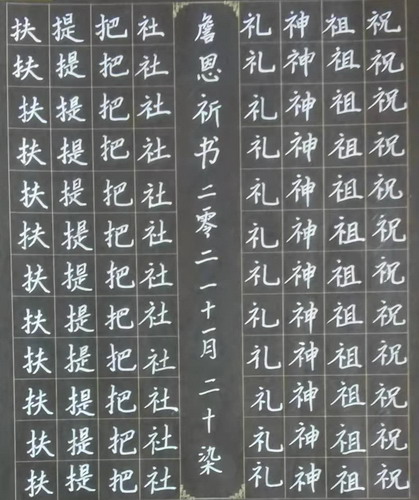 祝祝祝祝祝祝祝祝祝祝祝祝
祖祖祖祖祖祖祖祖祖祖祖祖
神神神神神神神神神神神神
礼礼礼礼礼礼礼礼礼礼礼礼
詹恩祈书二零二一十一月二十染
社社社社社社社社社社社社
把把把把把把把把把把把把
提提提提提提提提提提提提
扶扶扶扶扶扶扶扶扶扶扶扶